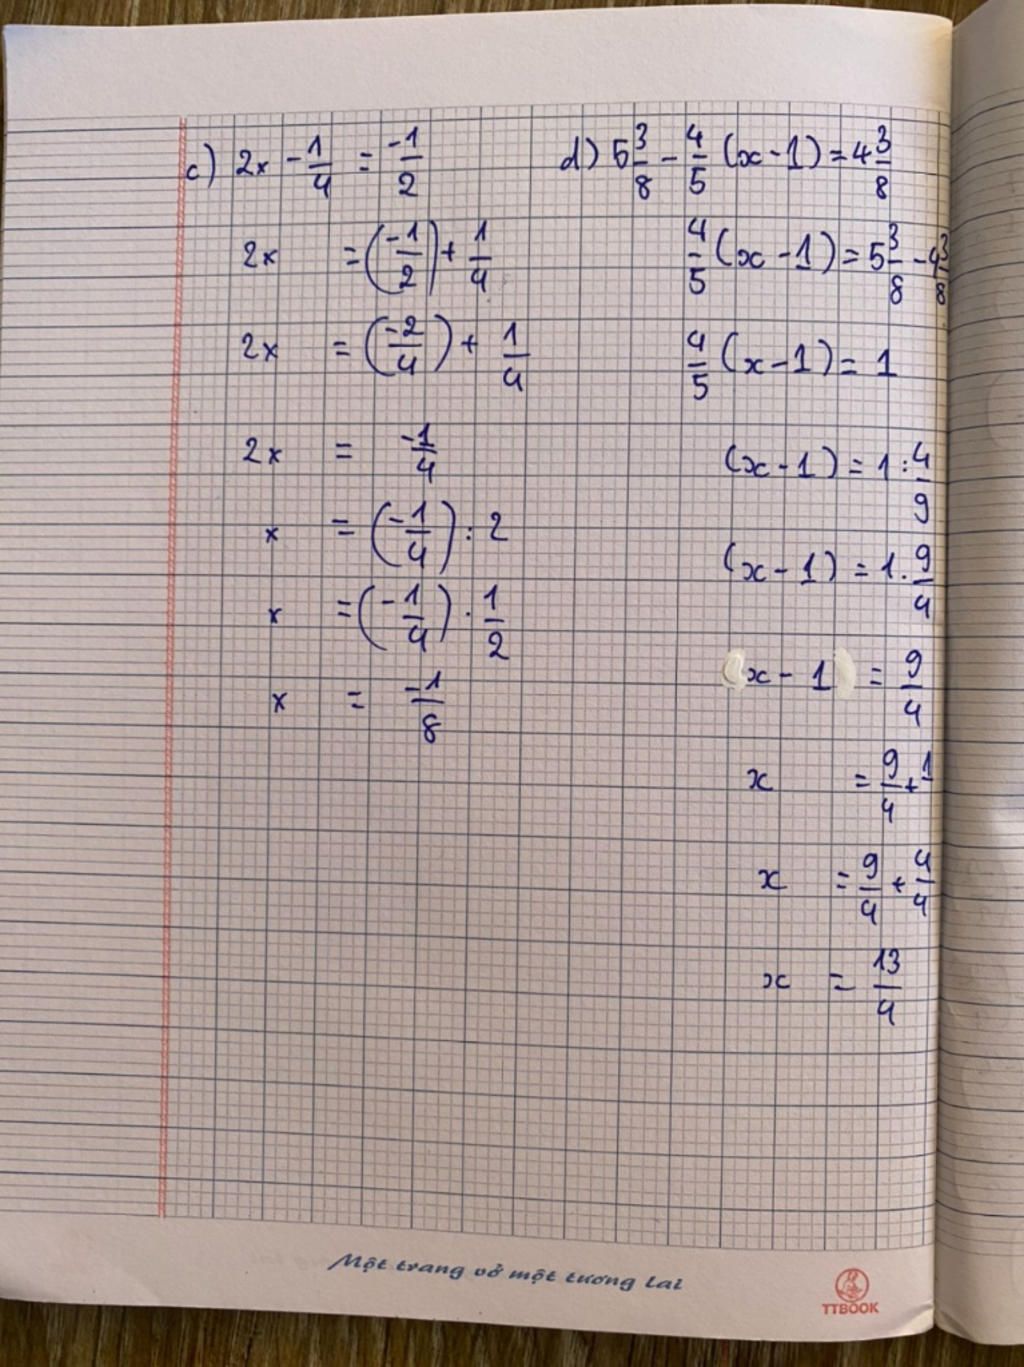 c) 2x - 1/4 = -1/2
2x = (-1/2) + 1/4
2x = (-2/4) + 1/4
2x = -1/4
x = (-1/4) : 2
x = (-1/4) . 1/2
x = -1/8
d) 5 3/8 - 4/5 (x - 1) = 4 3/8
4/5 (x - 1) = 5 3/8 - 4 3/8
4/5 (x - 1) = 1
(x - 1) = 1 : 4/9
(x - 1) = 1 . 9/4
(x - 1) = 9/4
x = 9/4 + 1
x = 9/4 + 4/4
x = 13/4
Một trang vở một tương lai
TTBOOK